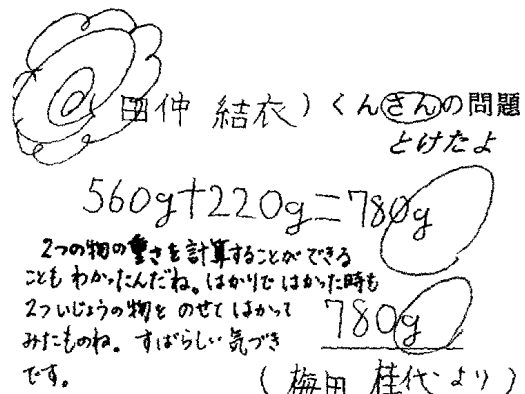 (田仲 結衣)くん さんの問題
とけたよ
560g+220g=780g
2つの物の重さを計算することができる
こともわかったんだね。はかりではかった時も
2ついじょうの物をのせてはかって
みたものね。すばらしい気づき
です。
780g
(梅田 桂代より)